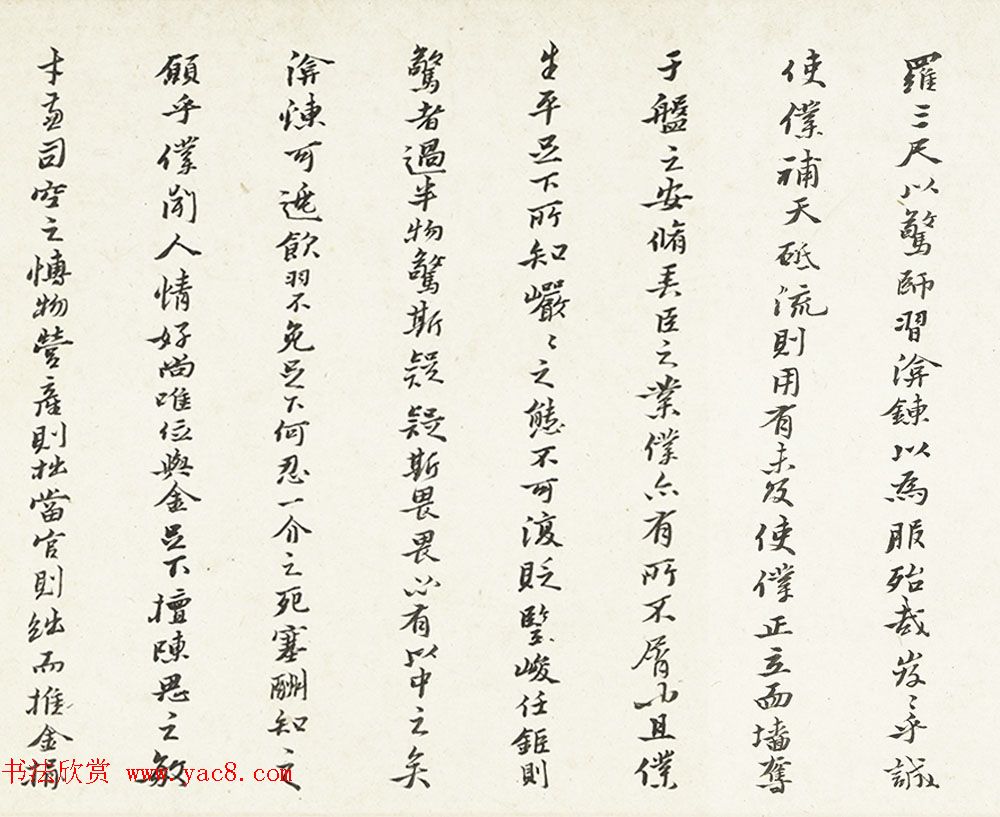 羅三尺以驚師習洴鍊以為服殆哉岌〻乎誠
使僕補天砥流則用有未及使僕正立而墻奪
于盤之安脩長臣之業僕亦有所不屑也且僕
生平足下所知巖〻之態不可復貶竪峻任鉅則
驚者過半物驚斯疑疑斯畏畏必有以中之矣
洴煉可飲羽不免足下何忍一介之死塞酬知之
願乎僕聞人情好尚唯位與金足下擅陳思之敏
才司空之博物營產則拙當官則絀而推金捐
书法欣赏 www.yac8.com